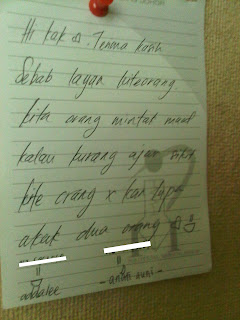 Hi kak :. Terima kasih
Sebab layan kiteorang
kita orang mintak maaf
kalau kurang ajar sikit
kite orang x kan lupe
akak dua orang
adalee